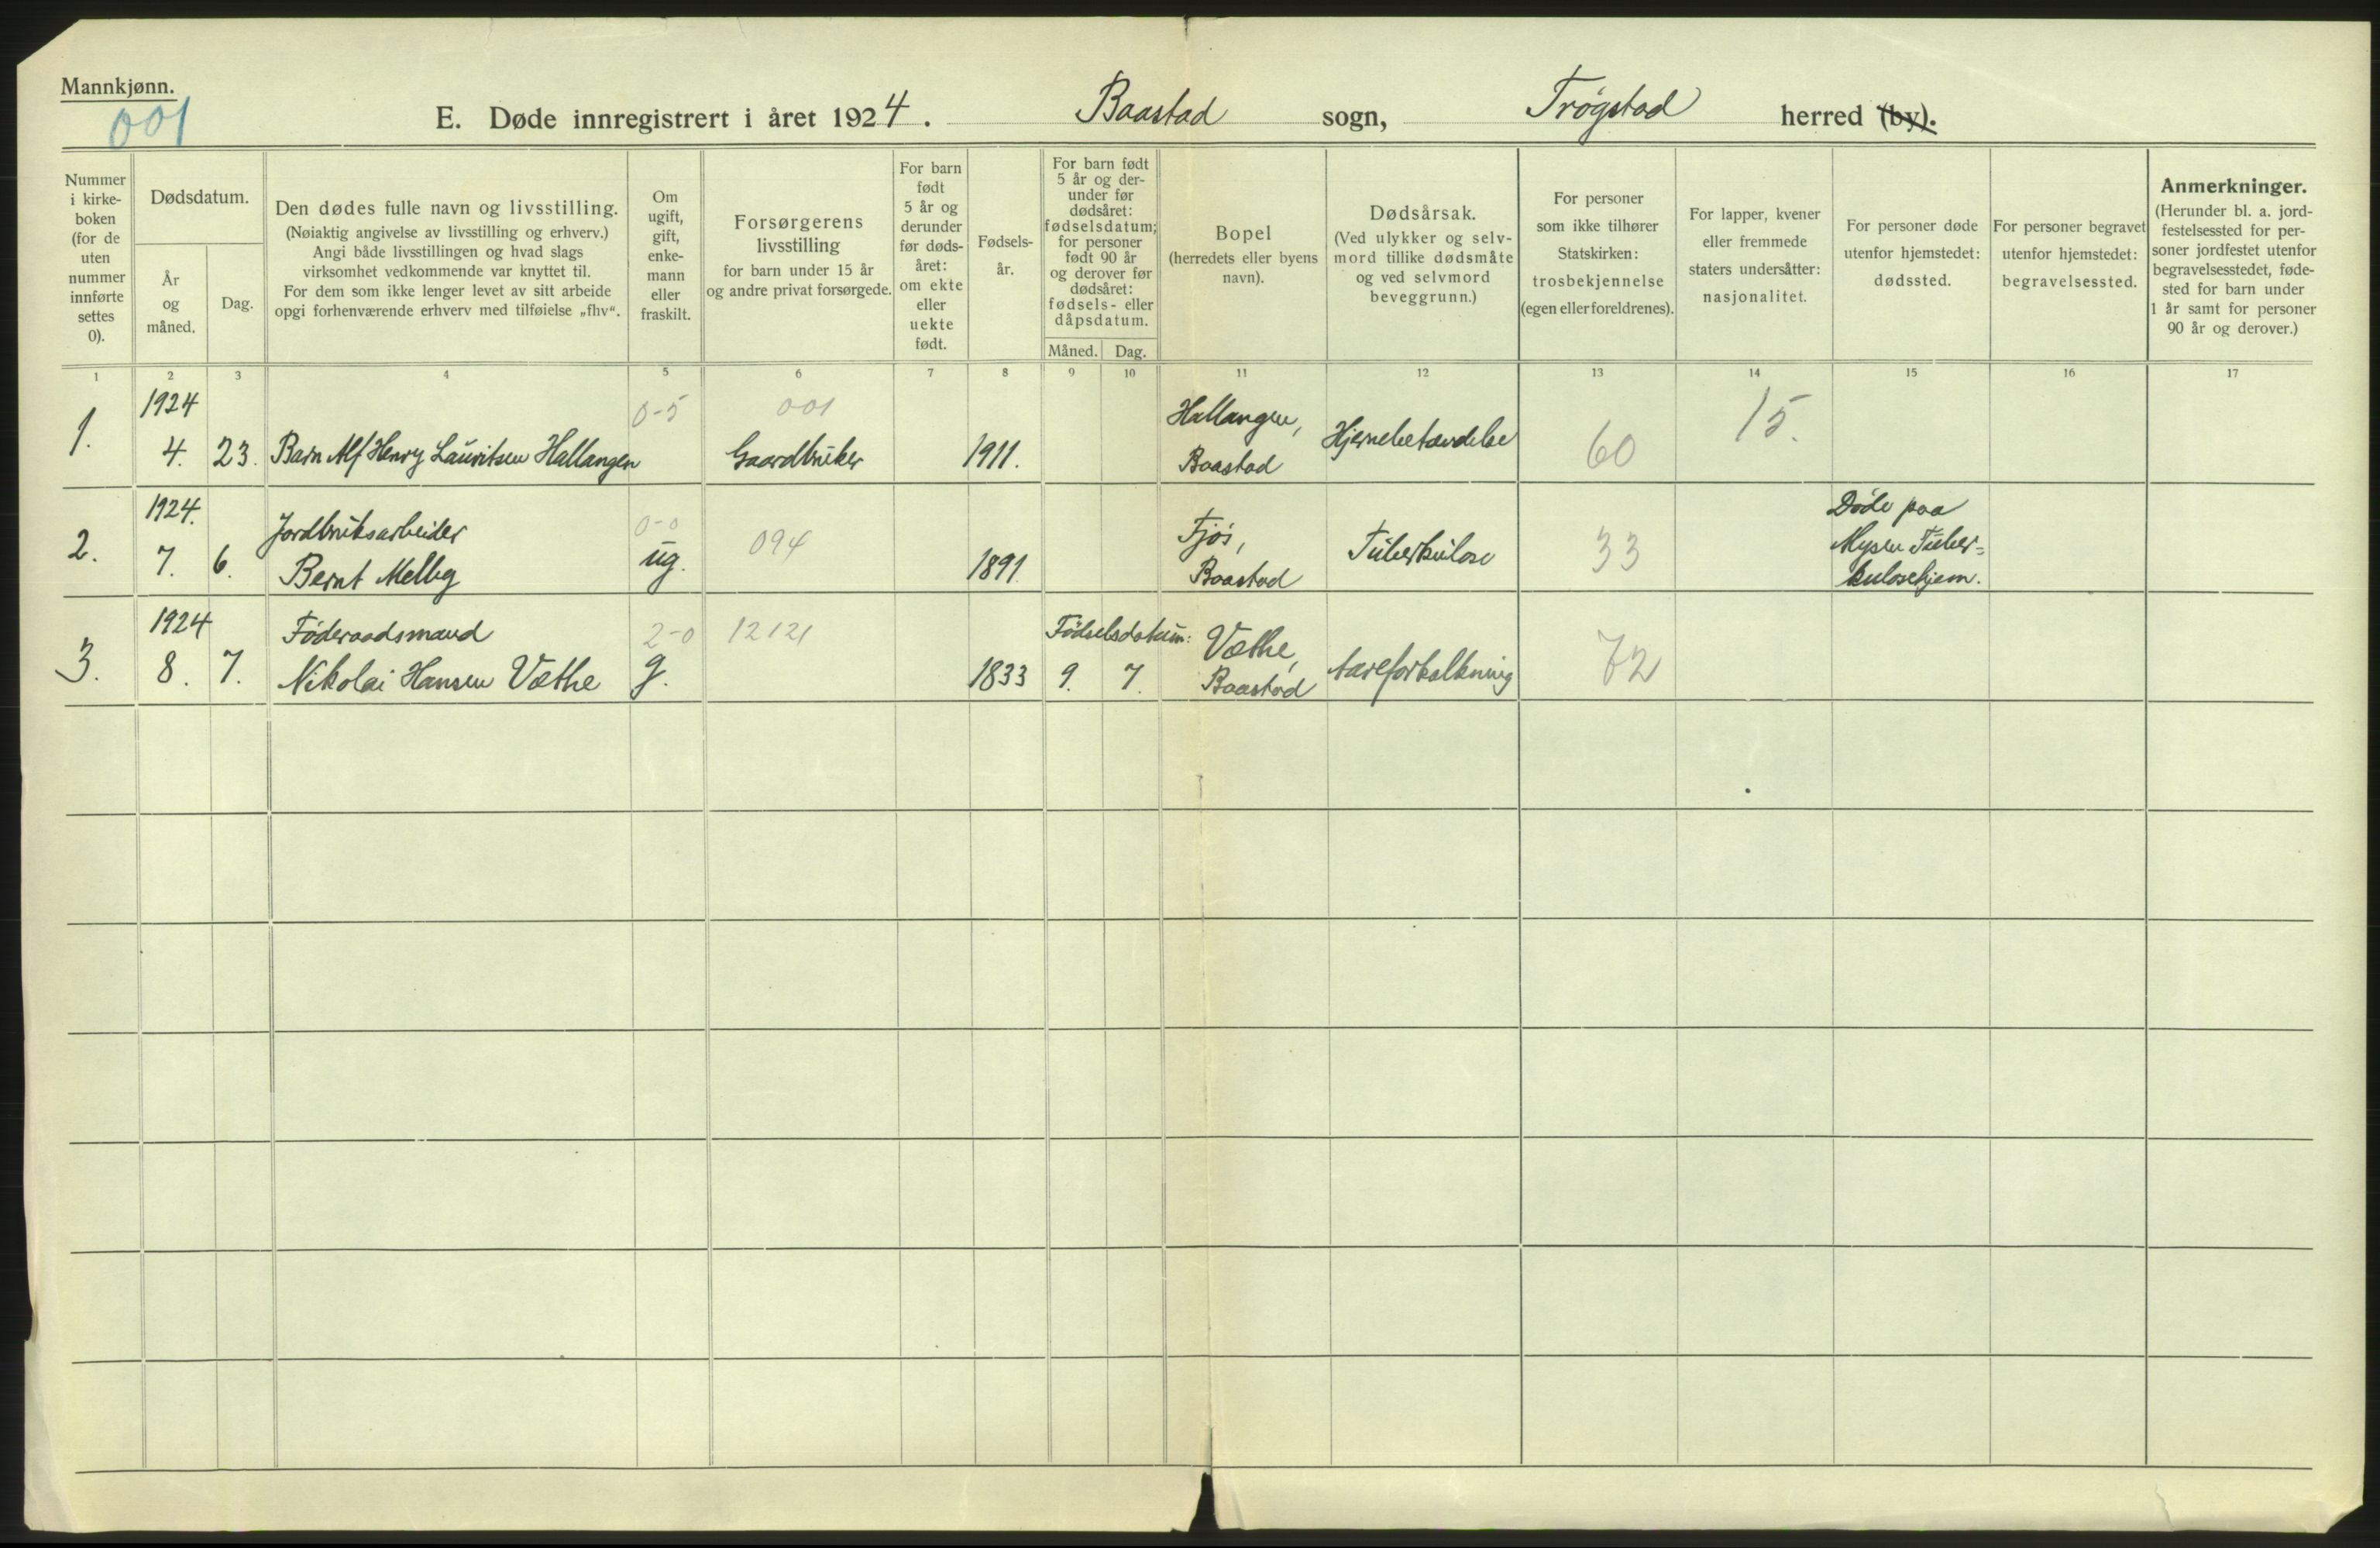 Mannkjønn.
001
E. Døde innregistrert i året 1924. Baastad sogn, Trøgstad herred (by).
Nummer
i kirke-
boken
(for de
uten
nummer
innførte
settes
0).
Dødsdatum.
År
og
måned.
Dag.
Den dødes fulle navn og livsstilling.
(Nøiaktig angivelse av livsstilling og erhverv.)
Angi både livsstillingen og hvad slags
virksomhet vedkommende var knyttet til.
For dem som ikke lenger levet av sitt arbeide
opgi forhenværende erhverv med tilføielse „fhv“.
Om
ugift,
gift,
enke-
mann
eller
fraskilt.
Forsørgerens
livsstilling
for barn under 15 år
og andre privat forsørgede.
For barn
født
5 år og
derunder
før døds-
året:
om ekte
eller
uekte
født.
Fødsels-
år.
For barn født
5 år og der-
under før
dødsåret:
fødselsdatum;
for personer
født 90 år
og derover før
dødsåret:
fødsels- eller
dåpsdatum.
Måned. Dag.
Bopel
(herredets eller byens
navn).
Dødsårsak.
(Ved ulykker og selv-
mord tillike dødsmåte
og ved selvmord
beveggrunn.)
For personer
som ikke tilhører
Statskirken:
trosbekjennelse
(egen eller foreldrenes).
For lapper, kvener
eller fremmede
staters undersåtter:
nasjonalitet.
For personer døde
utenfor hjemstedet:
dødssted.
For personer begravet
utenfor hjemstedet:
begravelsessted.
Anmerkninger.
(Herunder bl. a. jord-
festelsessted for per-
soner jordfestet utenfor
begravelsesstedet, føde-
sted for barn under
1 år samt for personer
90 år og derover.)
1 2 3 4 5 6 7 8 9 10 11 12 13 14 15 16 17
1924 0-5 001 Hallangen, 15.
1. 4. 23. Barn Alf Henry Lauritsen Hallangen Gaardbruker 1911. Baastad Hjernebetændelse 60
1924. Jordbruksarbeider 0-0 094 Fjøs, Døde paa
2. 7. 6. Bernt Melby ug. 1891. Baastad Tuberkulose 33 Mysen Tuber=
kulosehjem.
1924 Føderaadsmand 2-0 12121 Fødselsdatum: Væthe,
3. 8. 7. Nikolai Hansen Væthe g. 1833 9. 7. Baastad Aareforkalkning 72